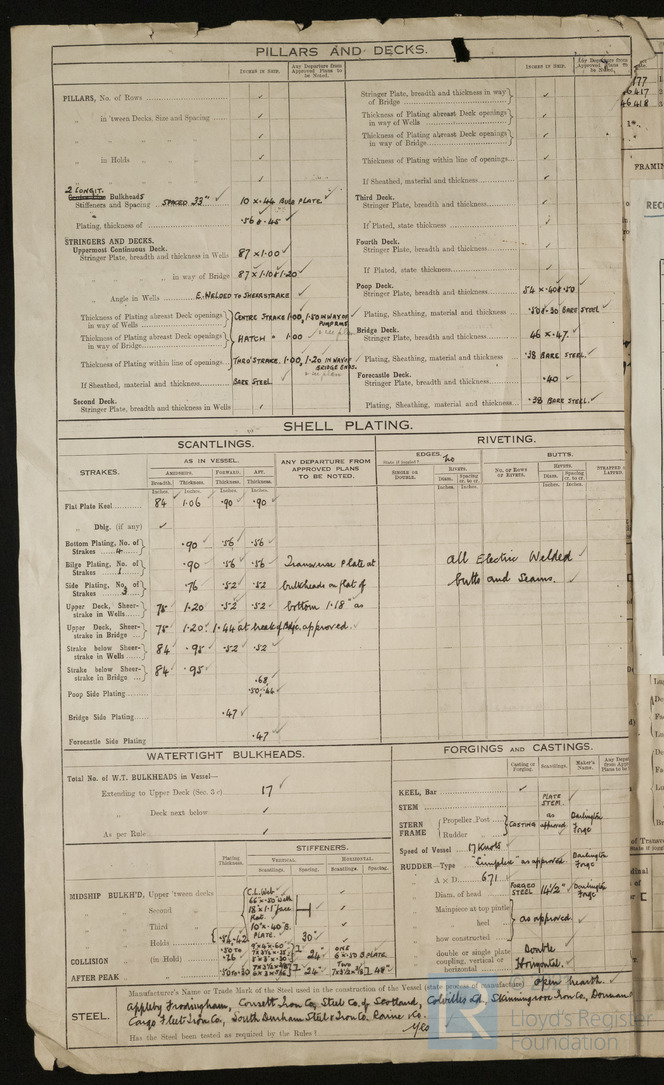 PILLARS AND DECKS.
INCHES IN SHIP.
Any Departure from Approved Plans to be Noted.
PILLARS, No. of Rows
„ in 'tween Decks, Size and Spacing
„ in Holds
2 LONGIT.
Bulkheads
Stiffeners and Spacing SPACED 33" 10 x .44 BULB PLATE
Plating, thickness of .56 & .45
STRINGERS AND DECKS.
Uppermost Continuous Deck.
Stringer Plate, breadth and thickness in Wells 87 x 1.00
„ in way of Bridge 87 x 1.10 & 1.20
„ Angle in Wells E.WELDED TO SHEERSTRAKE
Thickness of Plating abreast Deck openings in way of Wells CENTRE STRAKE 1.00, 1.50 IN WAY OF PUMP RME
Thickness of Plating abreast Deck openings in way of Bridge HATCH " 1.00
Thickness of Plating within line of openings THRO' STRAKE. 1.00, 1.20 IN WAY OF BRIDGE ENDS.
see plan
If Sheathed, material and thickness BARE STEEL
Second Deck.
Stringer Plate, breadth and thickness in Wells
INCHES IN SHIP.
Any Departure from Approved Plans to be Noted.
Stringer Plate, breadth and thickness in way of Bridge
Thickness of Plating abreast Deck openings in way of Wells
Thickness of Plating abreast Deck openings in way of Bridge
Thickness of Plating within line of openings
If Sheathed, material and thickness
Third Deck.
Stringer Plate, breadth and thickness
If Plated, state thickness
Fourth Deck.
Stringer Plate, breadth and thickness
If Plated, state thickness
Poop Deck.
Stringer Plate, breadth and thickness 54 x .40 & .50
Plating, Sheathing, material and thickness .50 & .30 BARE STEEL
Bridge Deck.
Stringer Plate, breadth and thickness 46 x .47.
Plating, Sheathing, material and thickness .38 BARE STEEL.
Forecastle Deck.
Stringer Plate, breadth and thickness .40
Plating, Sheathing, material and thickness .38 BARE STEEL.
SHELL PLATING.
SCANTLINGS.
RIVETING.
STRAKES.
AS IN VESSEL.
AMIDSHIPS. FORWARD. AFT.
Breadth. Thickness. Thickness. Thickness.
Inches. Inches. Inches. Inches.
ANY DEPARTURE FROM APPROVED PLANS TO BE NOTED.
EDGES.
State if joggled? no
SINGLE OR DOUBLE.
RIVETS.
Diam. Spacing cr. to cr.
Inches. Inches.
BUTTS.
NO. OF ROWS OF RIVETS.
RIVETS.
Diam. Spacing cr. to cr.
Inches. Inches.
STRAPPED OR LAPPED.
Flat Plate Keel 84 1.06 .90 .90
„ Dblg. (if any)
Bottom Plating, No. of Strakes 4 .90 .56 .56
Bilge Plating, No. of Strakes 1 .90 .56 .56 Transverse plate at
Side Plating, No. of Strakes 3 .76 .52 .52 bulkheads on flat of
Upper Deck, Sheerstrake in Wells 75 1.20 .52 .52 bottom 1.18" as
Upper Deck, Sheerstrake in Bridge 75 1.20 1.44 at break of Bdge. approved.
Strake below Sheerstrake in Wells 84 .95 .52 .52
Strake below Sheerstrake in Bridge 84 .95
Poop Side Plating .68 .50, .44
Bridge Side Plating .47
Forecastle Side Plating .47
all Electric Welded
butts and Seams.
WATERTIGHT BULKHEADS.
Total No. of W.T. BULKHEADS in Vessel—
Extending to Upper Deck (Sec. 3 c) 17
„ Deck next below
As per Rule
Plating Thickness.
STIFFENERS.
VERTICAL. HORIZONTAL.
Scantlings. Spacing. Scantlings. Spacing.
MIDSHIP BULK'D, Upper 'tween decks
„ Second
„ Third
„ Holds .54-.42
COLLISION „ (in Hold) .50 TO .26
AFTER PEAK „ .50 to .30
C.L. Web
66 x .50 with
18 x 1.1 face
flat.
10" x .40 B.
PLATE. 30"
24" ONE 6 x .50 B PLATE
24" TWO 48"
FORGINGS AND CASTINGS.
Casting or Forging. Scantlings. Maker's Name.
KEEL, Bar
STEM PLATE STEM.
STERN FRAME Propeller Post
Rudder „
CASTING as approved Darlington Forge
Speed of Vessel 17 Knots
RUDDER—Type "Simplex" as approved Darlington Forge
„ A x D 671
„ Diam. of head FORGED STEEL 14½" Darlington Forge
Mainpiece at top pintle
„ heel as approved
„ how constructed
„ double or single plate Double
„ coupling, vertical or horizontal Horizontal.
STEEL.
Manufacturer's Name or Trade Mark of the Steel used in the construction of the Vessel (state process of manufacture) open hearth.
Appleby Frodingham, Consett Iron Co, Steel Co. of Scotland, Colvilles Ld, Skinningrove Iron Co, Dorman
Cargo Fleet Iron Co, South Durham Steel & Iron Co. Raine & Co.
Has the Steel been tested as required by the Rules? Yes
Lloyd's Register
Foundation
FRAMIN
RECO